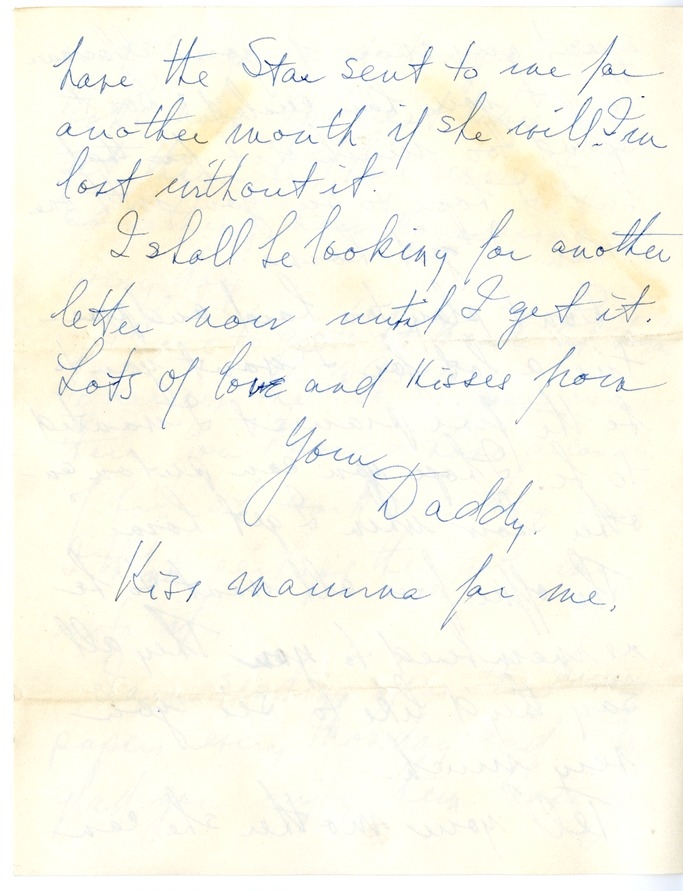 have the Star sent to me for
another month if she will. I'm
lost without it.
I shall be looking for another
letter now until I get it.
Lots of love and Kisses from
Your
Daddy.
Kiss mamma for me.